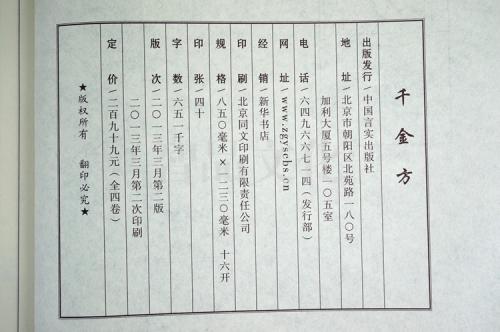 千金方
出版发行/中国言实出版社
地 址/北京市朝阳区北苑路一八〇号
加利大厦五号楼一〇五室
电 话/六四九六六七一四(发行部)
网 址/www.zgyscbs.cn
经 销/新华书店
印 刷/北京同文印刷有限责任公司
规 格/八五〇毫米×一二三〇毫米 十六开
印 张/四十
字 数/六五一千字
版 次/二〇一三年三月第二版
二〇一三年三月第二次印刷
定 价/二百九十九元(全四卷)
★版权所有 翻印必究★